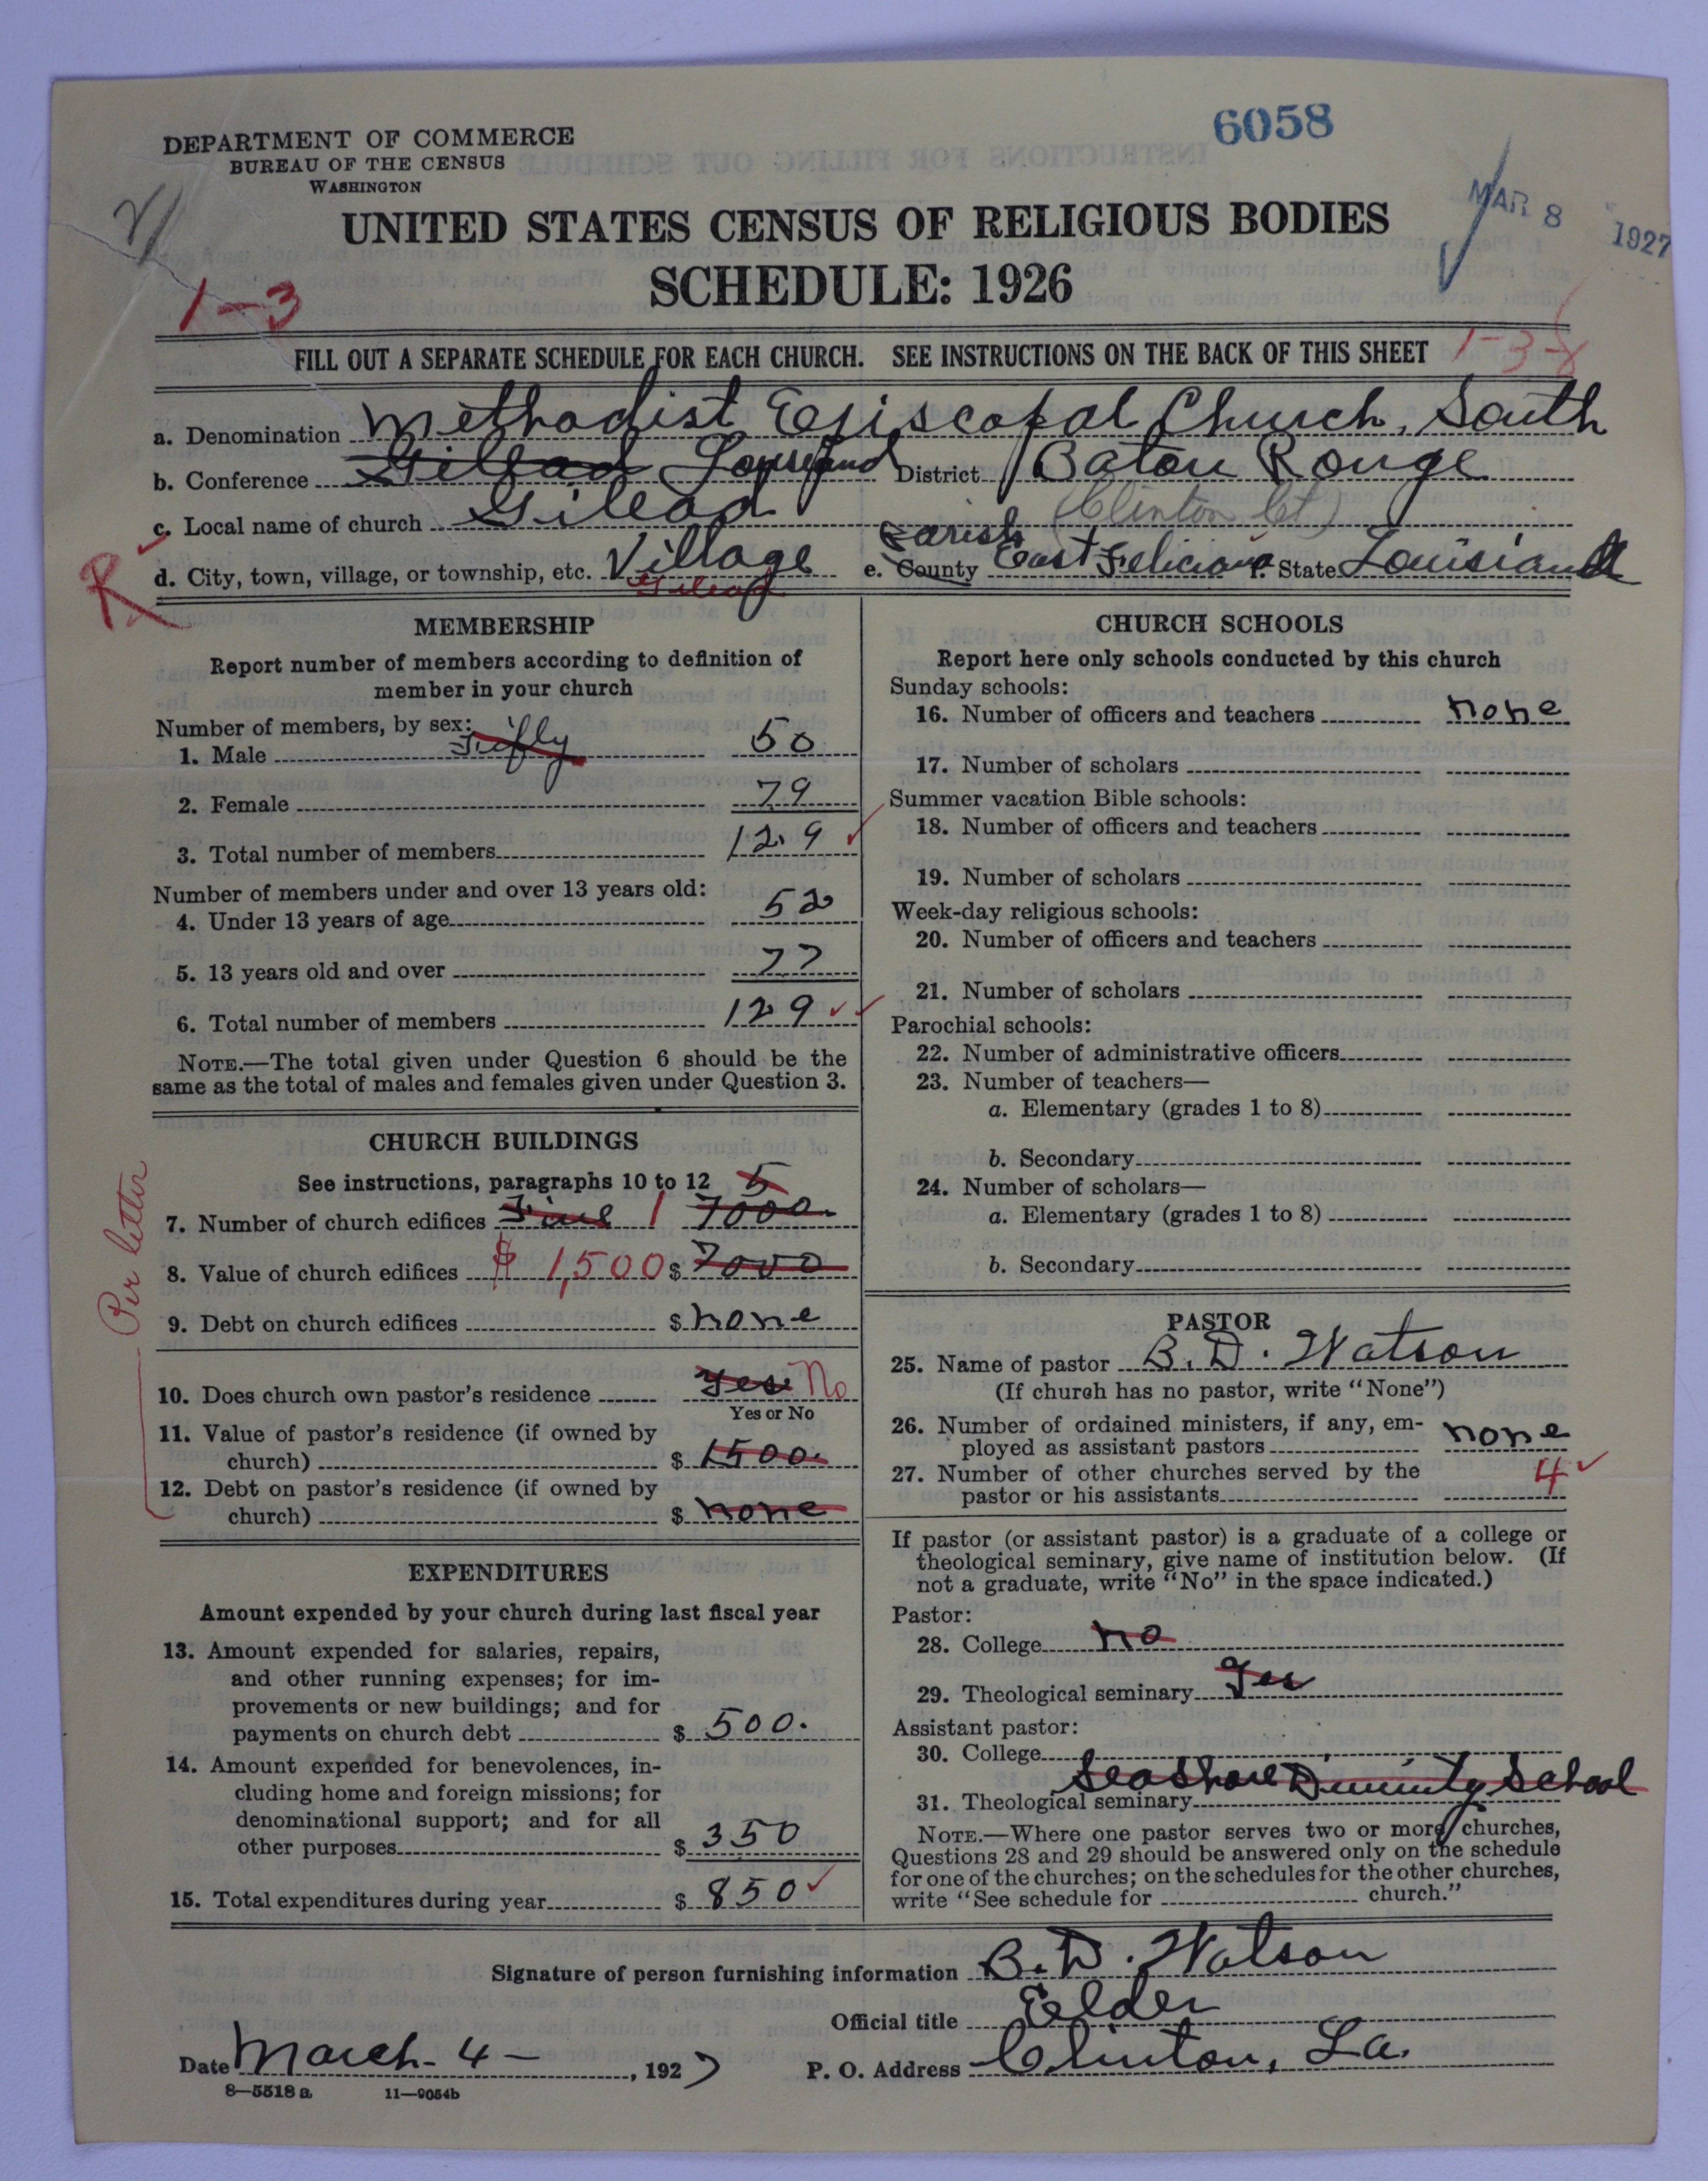 6058
DEPARTMENT OF COMMERCE
BUREAU OF THE CENSUS
WASHINGTON
MAR 8 1927
UNITED STATES CENSUS OF RELIGIOUS BODIES
SCHEDULE: 1926
1-3
FILL OUT A SEPARATE SCHEDULE FOR EACH CHURCH. SEE INSTRUCTIONS ON THE BACK OF THIS SHEET 1-3-
a. Denomination Methodist Episcopal Church, South
b. Conference Gilead District Baton Rouge
c. Local name of church Gilead (Clinton Ct)
R
d. City, town, village, or township, etc. Village Gilead e. County Parish East Feliciana f. State Louisiana
MEMBERSHIP
Report number of members according to definition of
member in your church
Number of members, by sex:
1. Male 50
2. Female 79
3. Total number of members 129
Number of members under and over 13 years old:
4. Under 13 years of age 52
5. 13 years old and over 77
6. Total number of members 129
NOTE.—The total given under Question 6 should be the
same as the total of males and females given under Question 3.
CHURCH BUILDINGS
See instructions, paragraphs 10 to 12 5
7. Number of church edifices Five 1 7000.
8. Value of church edifices $ 1,500 $ 7000
9. Debt on church edifices $ none
10. Does church own pastor's residence Yes No
Yes or No
11. Value of pastor's residence (if owned by
church) $ 1500.
12. Debt on pastor's residence (if owned by
church) $ none
Per letter
EXPENDITURES
Amount expended by your church during last fiscal year
13. Amount expended for salaries, repairs,
and other running expenses; for im-
provements or new buildings; and for
payments on church debt $ 500.
14. Amount expended for benevolences, in-
cluding home and foreign missions; for
denominational support; and for all
other purposes $ 350
15. Total expenditures during year $ 850
CHURCH SCHOOLS
Report here only schools conducted by this church
Sunday schools:
16. Number of officers and teachers none
17. Number of scholars
Summer vacation Bible schools:
18. Number of officers and teachers
19. Number of scholars
Week-day religious schools:
20. Number of officers and teachers
21. Number of scholars
Parochial schools:
22. Number of administrative officers
23. Number of teachers—
a. Elementary (grades 1 to 8)
b. Secondary
24. Number of scholars—
a. Elementary (grades 1 to 8)
b. Secondary
PASTOR
25. Name of pastor B. D. Watson
(If church has no pastor, write "None")
26. Number of ordained ministers, if any, em-
ployed as assistant pastors none
27. Number of other churches served by the
pastor or his assistants 4
If pastor (or assistant pastor) is a graduate of a college or
theological seminary, give name of institution below. (If
not a graduate, write "No" in the space indicated.)
Pastor:
28. College no
29. Theological seminary Yes
Assistant pastor:
30. College
Seashore Divinity School
31. Theological seminary
NOTE.—Where one pastor serves two or more churches,
Questions 28 and 29 should be answered only on the schedule
for one of the churches; on the schedules for the other churches,
write "See schedule for church."
Signature of person furnishing information B. D. Watson
Official title Elder
Date March 4 - , 1927 P. O. Address Clinton, La.
8-5518 a 11-9054b